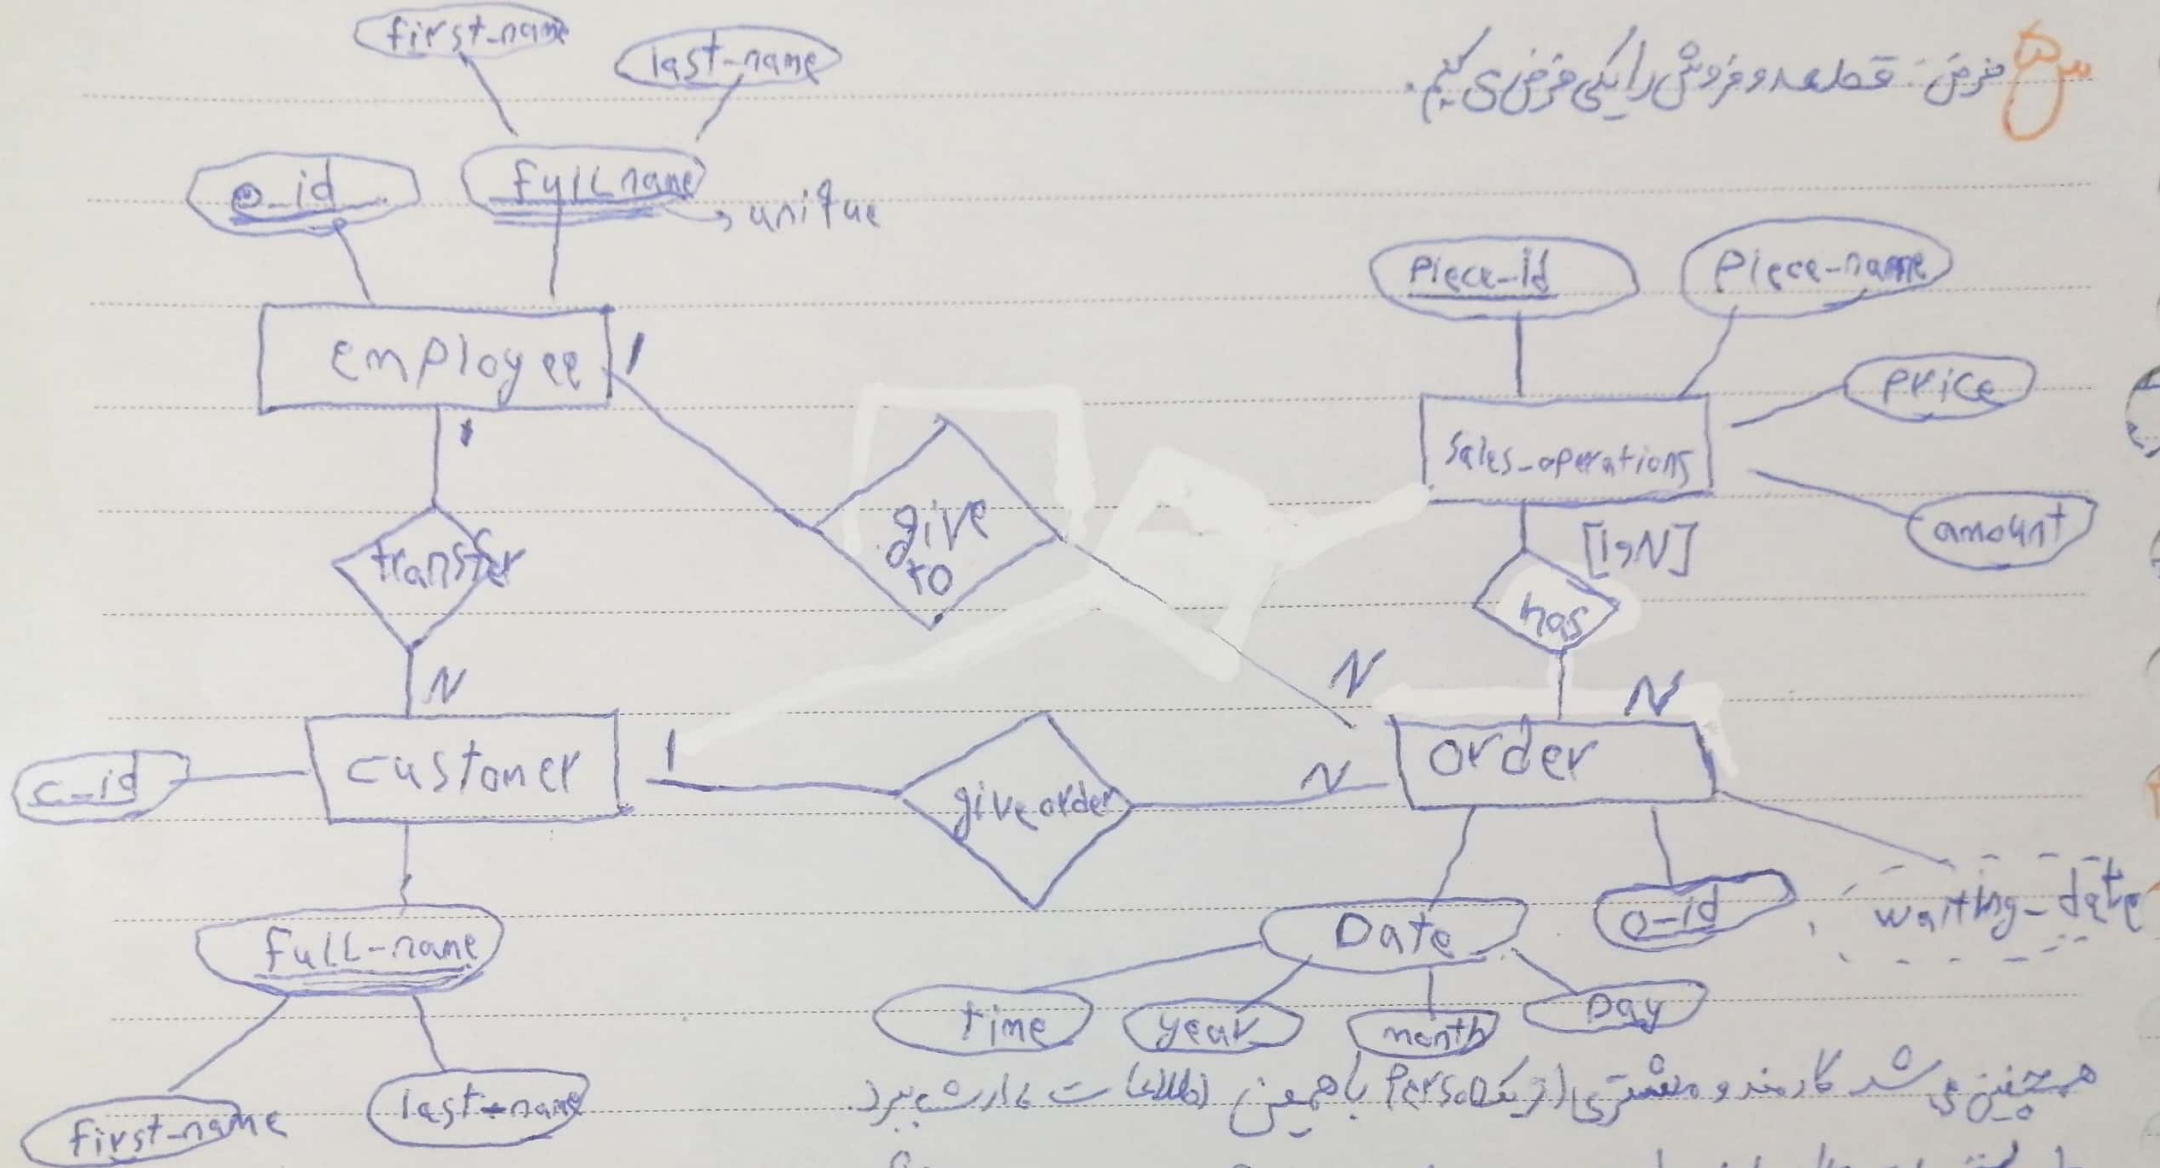 first-name
last-name
فرض: قطعه و فروش را یکی فرض می کنیم.
e-id
full name
unique
piece-id
piece-name
employee
1
price
1
sales-operations
give to
amount
[1,N]
transfer
has
N
N
N
customer
1
give order
N
order
c-id
full-name
Date
o-id
waiting-date
time
year
month
Day
first-name
last-name
همچنین می شد کارمند و مشتری از یک Person با همین اطلاعات ارث ببرد.